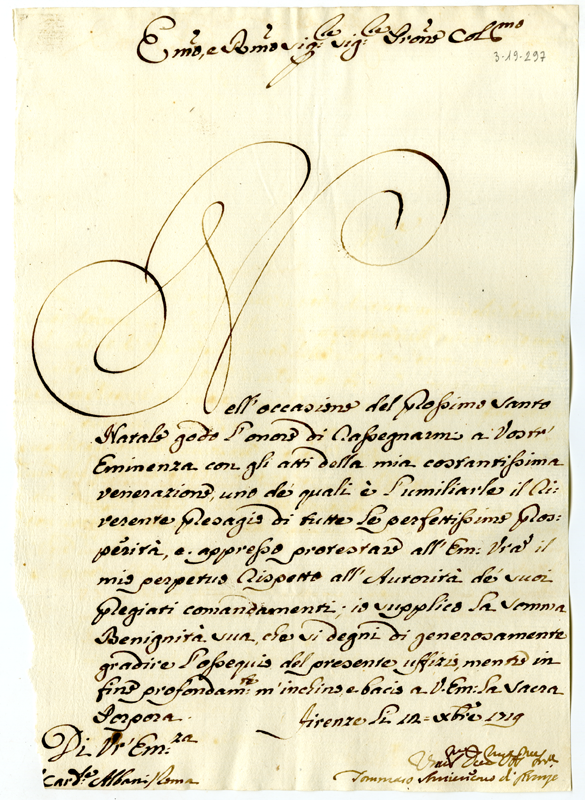 Em̃o, e Rm̃o Sig:re Sig:re Prõne Col:mo
3-19-297
Nell'occasione del prossimo Santo
Natale godo l'onore di rassegnarmi a Vostr'
Eminenza con gli atti della mia costantissima
venerazione, uno de' quali è l'umiliarle il ri-
verente presagio di tutte le perfettissime pros-
perità, e appresso protestare all'Em: Vrã il
mio perpetuo rispetto all'Autorità de' suoi
pregiati comandamenti; io supplico la somma
Benignità sua, che si degni di generosamente
gradire l'ossequio del presente uffizio, mentre in
fine profondam:te m'inchino e bacio a V: Em: la Sacra
Porpora. Firenze li 12= Xbre 1719
Di Vr' Em:za
Card:le Albani Roma
Tommaso